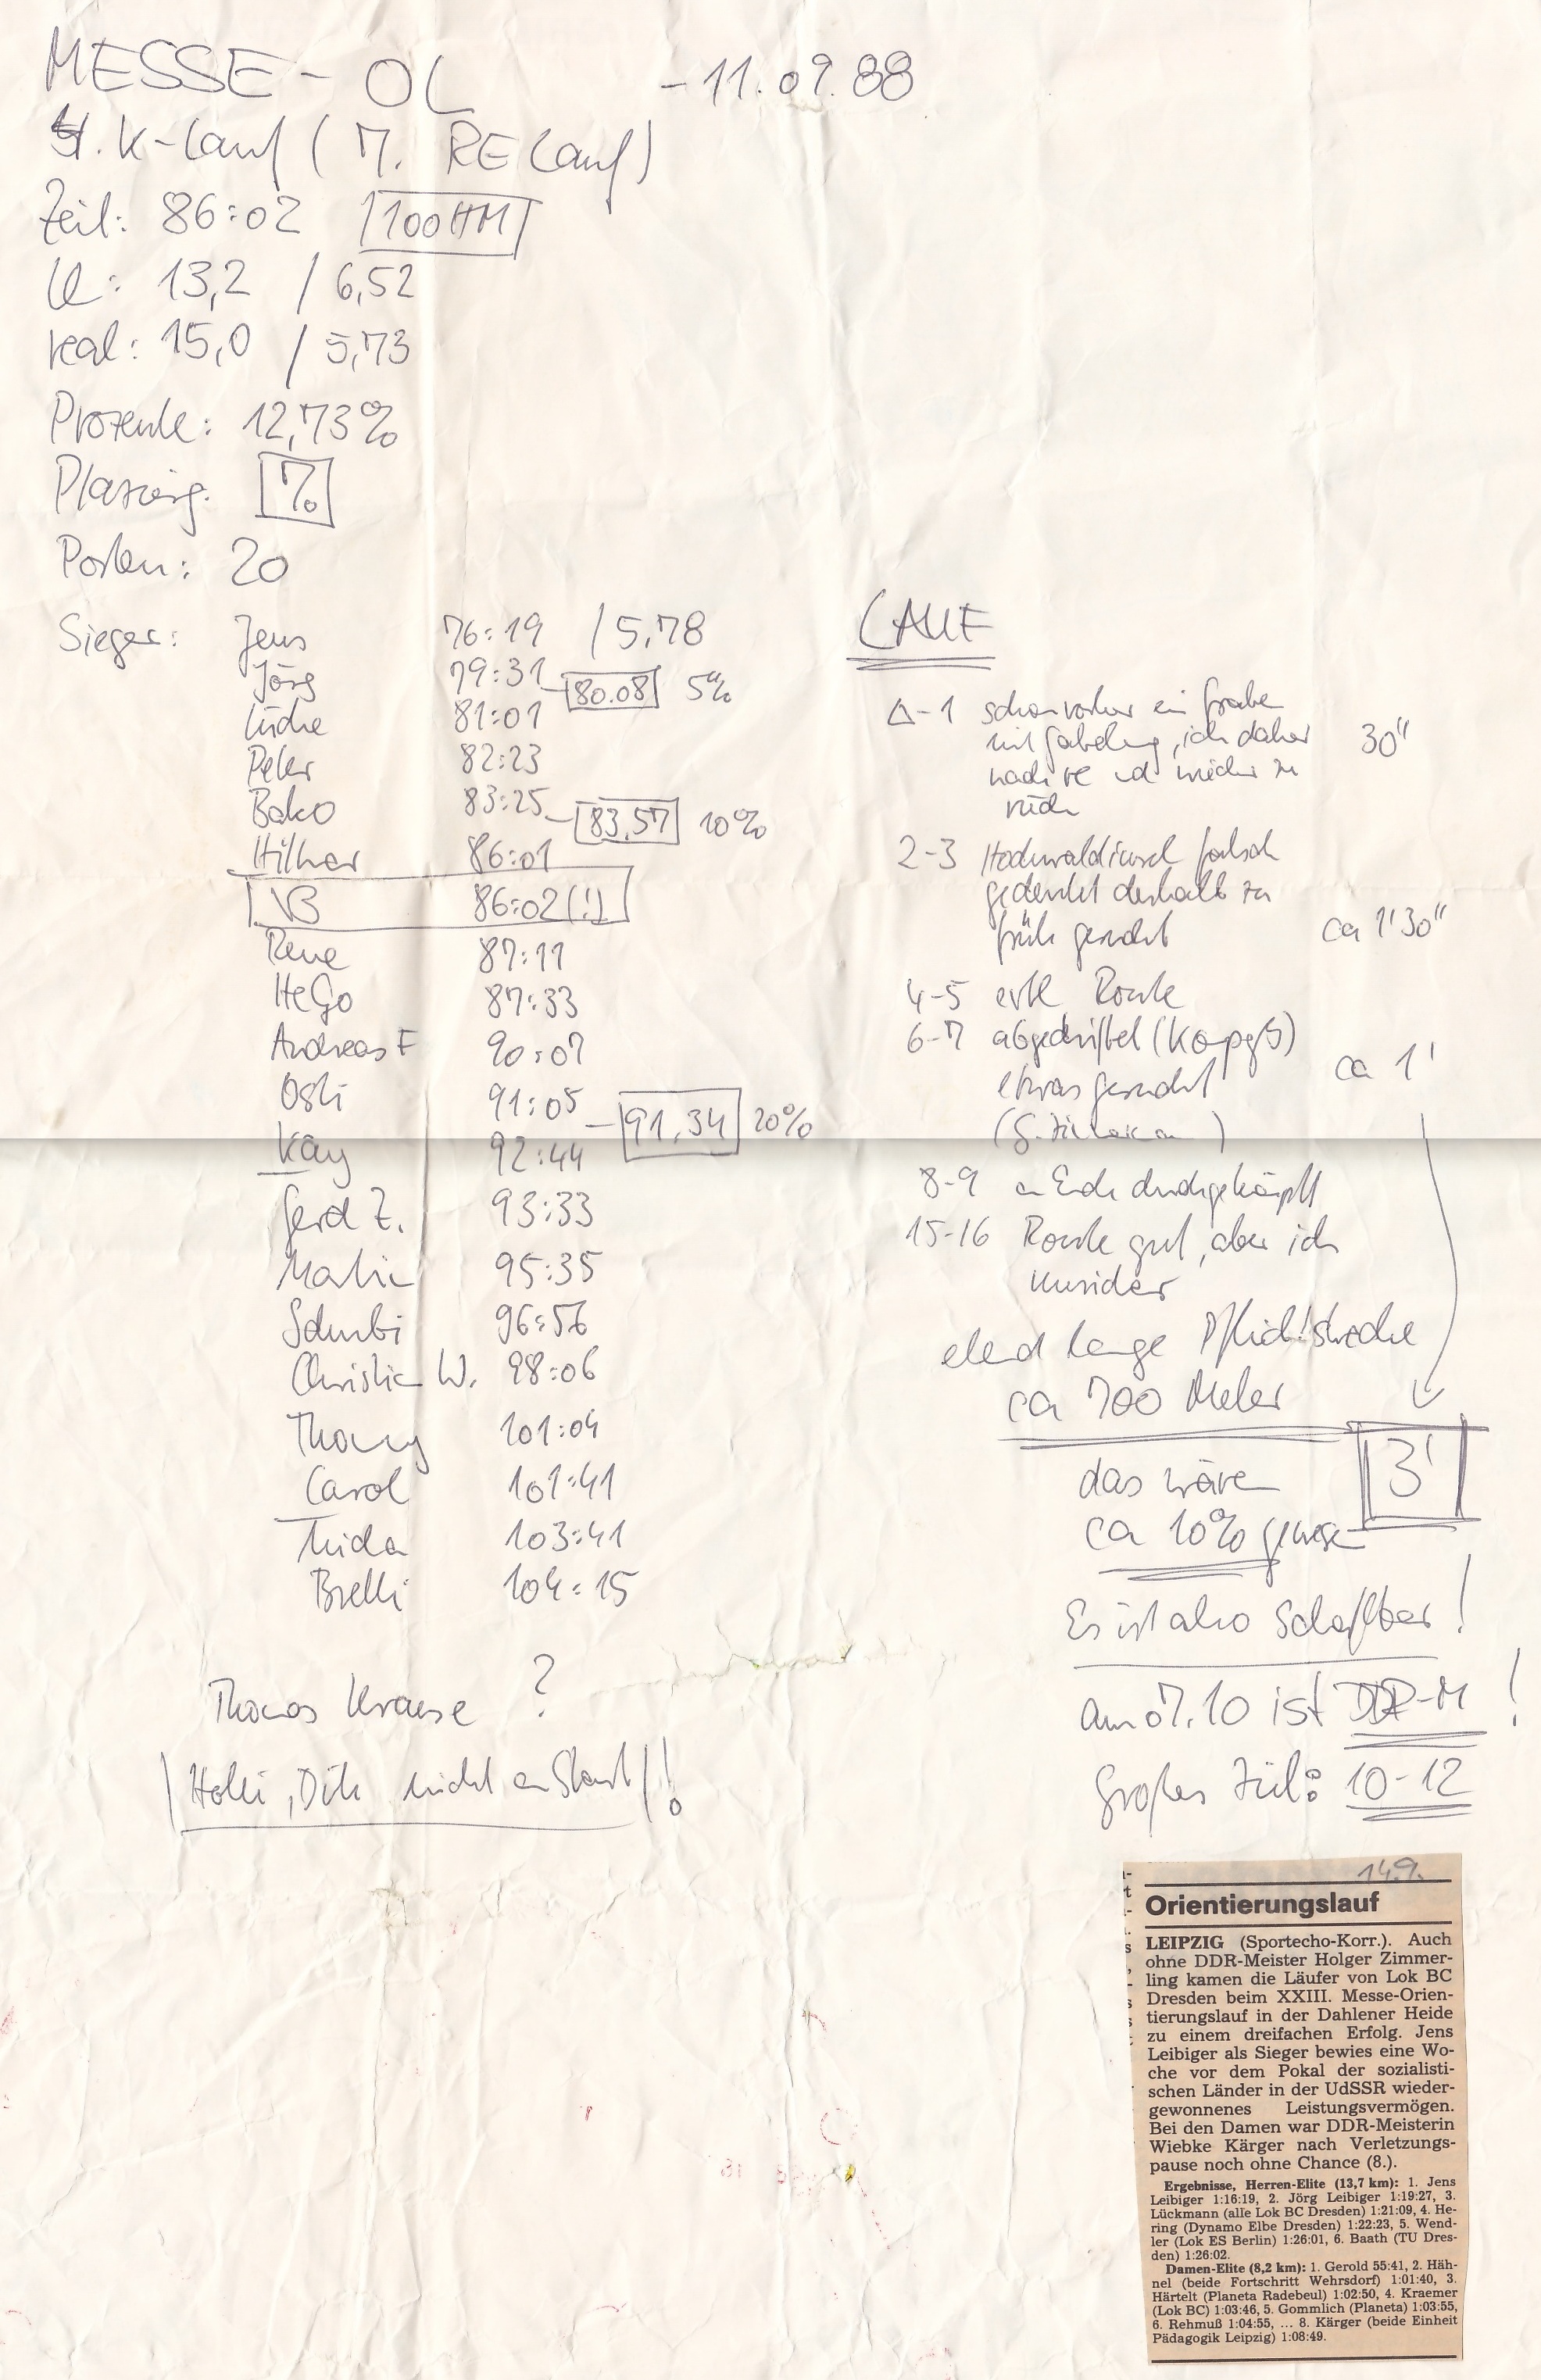 MESSE-OL - 11.09.88
4. K-Lauf (7. RE Lauf)
Zeit: 86:02 100HM
LL: 13,2 / 6,52
real: 15,0 / 5,73
Prozente: 12,73%
Plazierg. 7.
Posten: 20
Sieger: Jens 76:19 / 5,78
Jörg 79:31 - 80.08 5%
Lücke 81:01
Peter 82:23
Bako 83:25 - 83,57 10%
Hilmar 86:01
VB 86:02(!)
Rene 87:11
HeGo 87:33
Andreas F 90:07
Osti 91:05 - 91,34 20%
Kay 92:44
Gerd Z. 93:33
Martin 95:35
Schubi 96:56
Christian W. 98:06
Thomy 101:04
Carol 101:41
103:41
104:15
Thomas Krause ?
Holli, Dik nicht am Start!
LAUF
Δ-1 schon vorher ein Graben
mit Gabelung, ich daher
nach re und wieder zu
rück
30"
2-3 Hochwaldinsel falsch
gedeutet deshalb zu
früh gesucht
ca 1'30"
4-5 Route
6-7 abgedriftet
etwas gesucht
ca 1'
8-9 am Ende durchgekämpft
15-16 Route gut, aber ich
unsicher
elend lange Pflichtstrecke
ca 700 Meter
3'
das wäre
ca 10% gewesen
Es ist also schaffbar!
am 07.10 ist DDR-M!
Großes Ziel: 10-12
14.9.
Orientierungslauf
LEIPZIG (Sportecho-Korr.). Auch
ohne DDR-Meister Holger Zimmer-
ling kamen die Läufer von Lok BC
Dresden beim XXIII. Messe-Orien-
tierungslauf in der Dahlener Heide
zu einem dreifachen Erfolg. Jens
Leibiger als Sieger bewies eine Wo-
che vor dem Pokal der sozialisti-
schen Länder in der UdSSR wieder-
gewonnenes Leistungsvermögen.
Bei den Damen war DDR-Meisterin
Wiebke Kärger nach Verletzungs-
pause noch ohne Chance (8.).
Ergebnisse, Herren-Elite (13,7 km): 1. Jens
Leibiger 1:16:19, 2. Jörg Leibiger 1:19:27, 3.
Lückmann (alle Lok BC Dresden) 1:21:09, 4. He-
ring (Dynamo Elbe Dresden) 1:22:23, 5. Wend-
ler (Lok ES Berlin) 1:26:01, 6. Baath (TU Dres-
den) 1:26:02.
Damen-Elite (8,2 km): 1. Gerold 55:41, 2. Häh-
nel (beide Fortschritt Wehrsdorf) 1:01:40, 3.
Härtelt (Planeta Radebeul) 1:02:50, 4. Kraemer
(Lok BC) 1:03:46, 5. Gommlich (Planeta) 1:03:55,
6. Rehmuß 1:04:55, ... 8. Kärger (beide Einheit
Pädagogik Leipzig) 1:08:49.